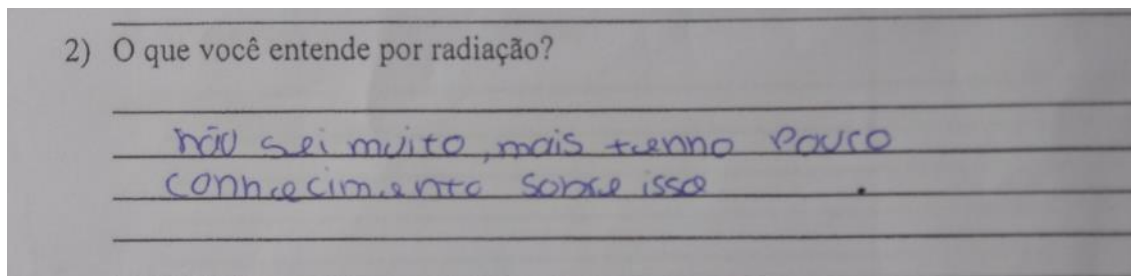 2) O que você entende por radiação?
não sei muito, mais tenho pouco
conhecimento sobre isso .